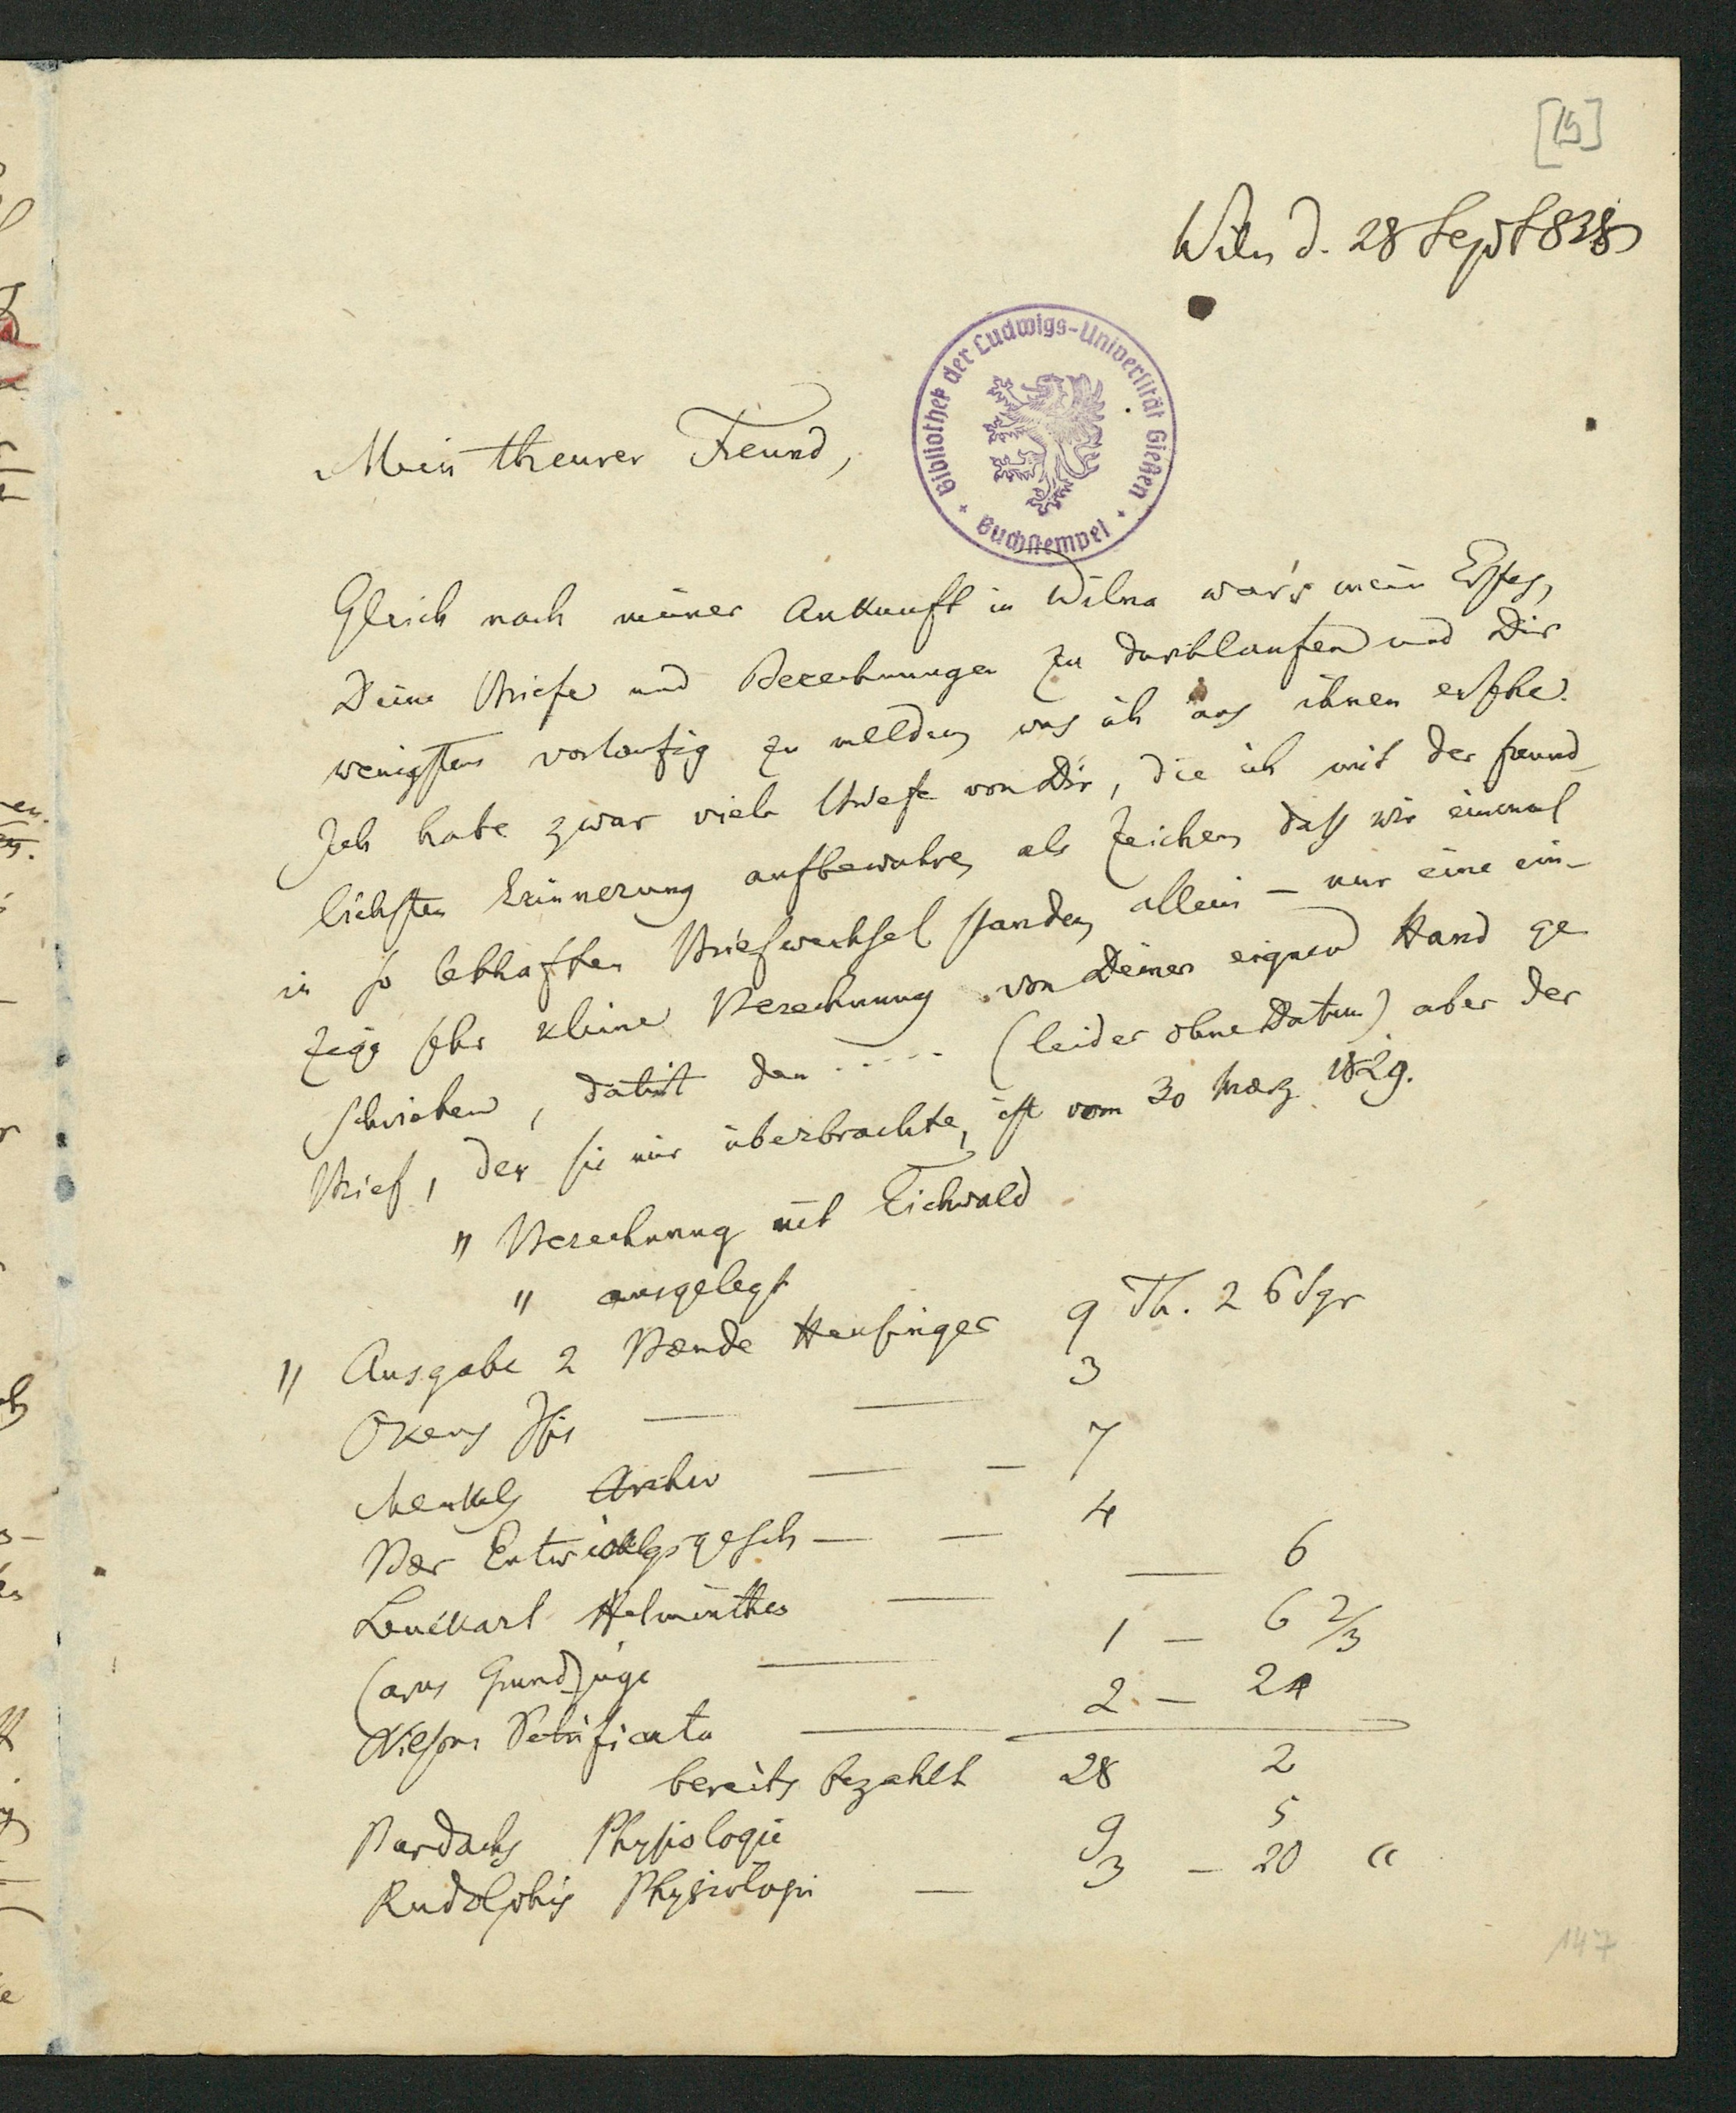 [15]
Wiln d. 28 Sept 838
Bibliothek der Ludwigs-Universität Gießen
Buchstempel
Mein theurer Freund,
Gleich nach meiner Ankunft in Wilna war's mein Erstes,
Deine Briefe und Berechnungen zu durchlaufen und Dir
wenigstens vorlaufig zu melden, was ich aus ihnen ersehe.
Ich habe zwar viele Briefe von Dir, die ich mit der freund-
lichsten Erinnerung aufbewahre, als Zeichen, dass wir einmal
in so lebhaften Briefwechsel standen, allein – nur eine ein-
zige sehr kleine Berechnung von Deiner eignen Hand ge
schrieben, datirt den .... (leider ohne Datum) aber der
Brief, der sie mir überbrachte, ist vom 30 März 1829.
" Berechnung mit Eichwald
" ausgelegt
" Ausgabe 2 Bænde Heusinger 9 Th. 26 Sgr
Okens Isis — — 3
Meckels Archiv — — 7
Bær Entwicklgsgesch — — 4
Leuckart Helminthes — — 6
Carus Grundzüge — 1 — 6 2/3
Nilsons Petrificata — 2 — 24
bereits bezahlt 28 2
Burdachs Physiologie 9 5
Rudolphis Physiologi — 3 — 20 "
147